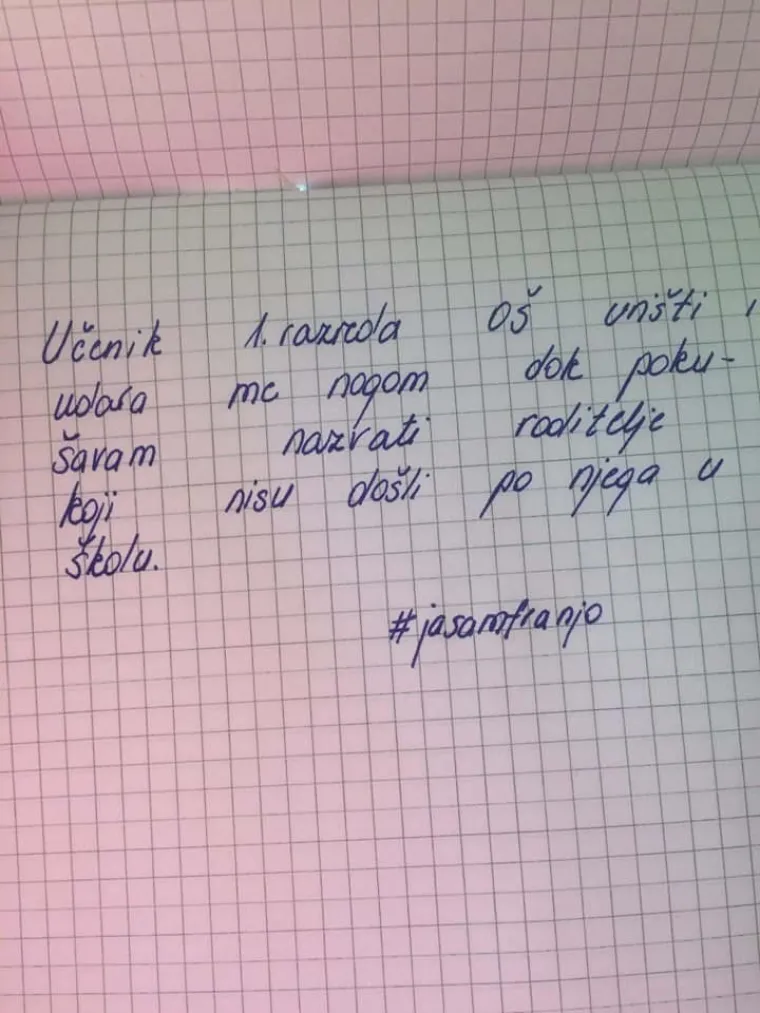 Učenik 1. razreda OŠ vrišti i
udara me nogom dok poku-
šavam nazvati roditelje
koji nisu došli po njega u
školu.
#jasamfranjo